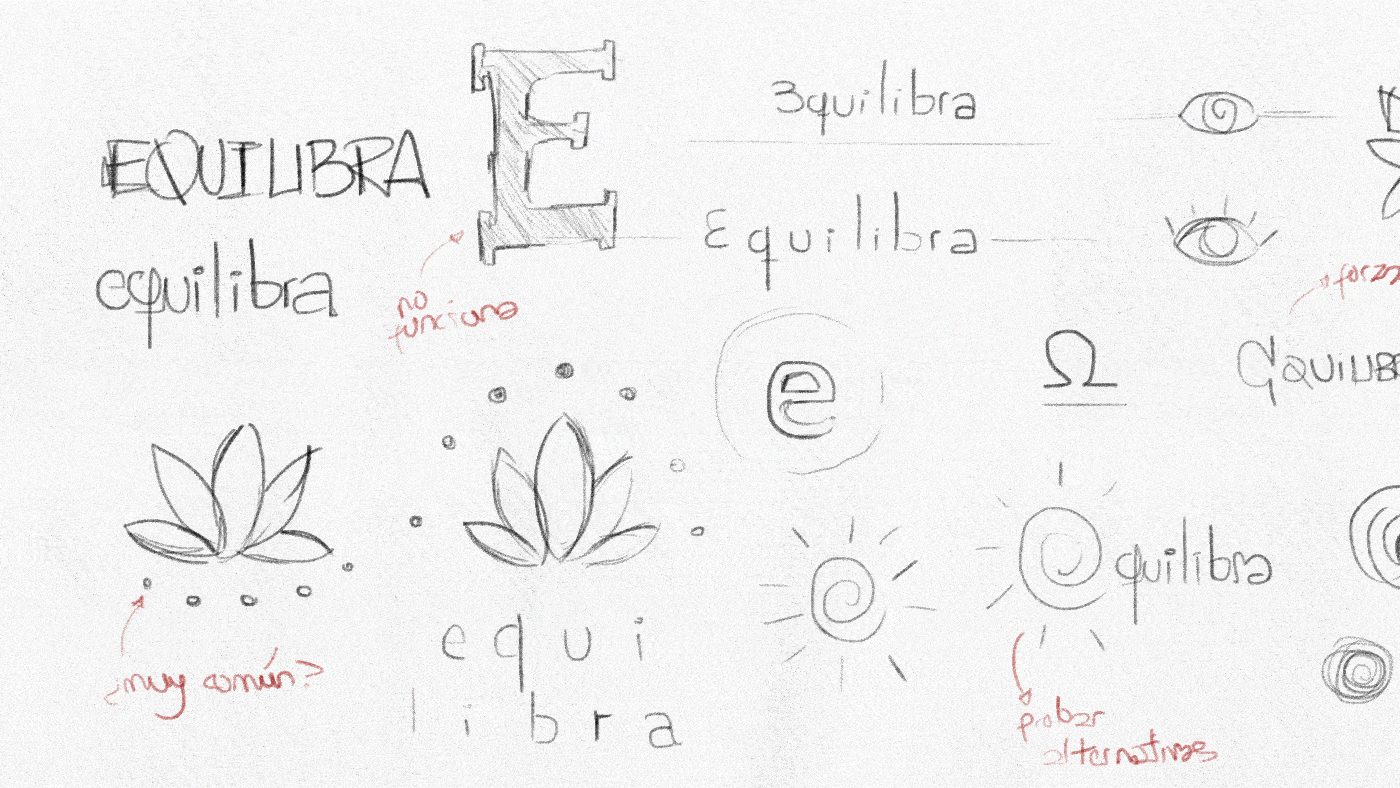 EQUILIBRA
equilibra
E
no
funciona
3quilibra
Equilibra
e
Ω
forza
EQUILIB
¿muy común?
equi
libra
quilibra
probar
alternativas